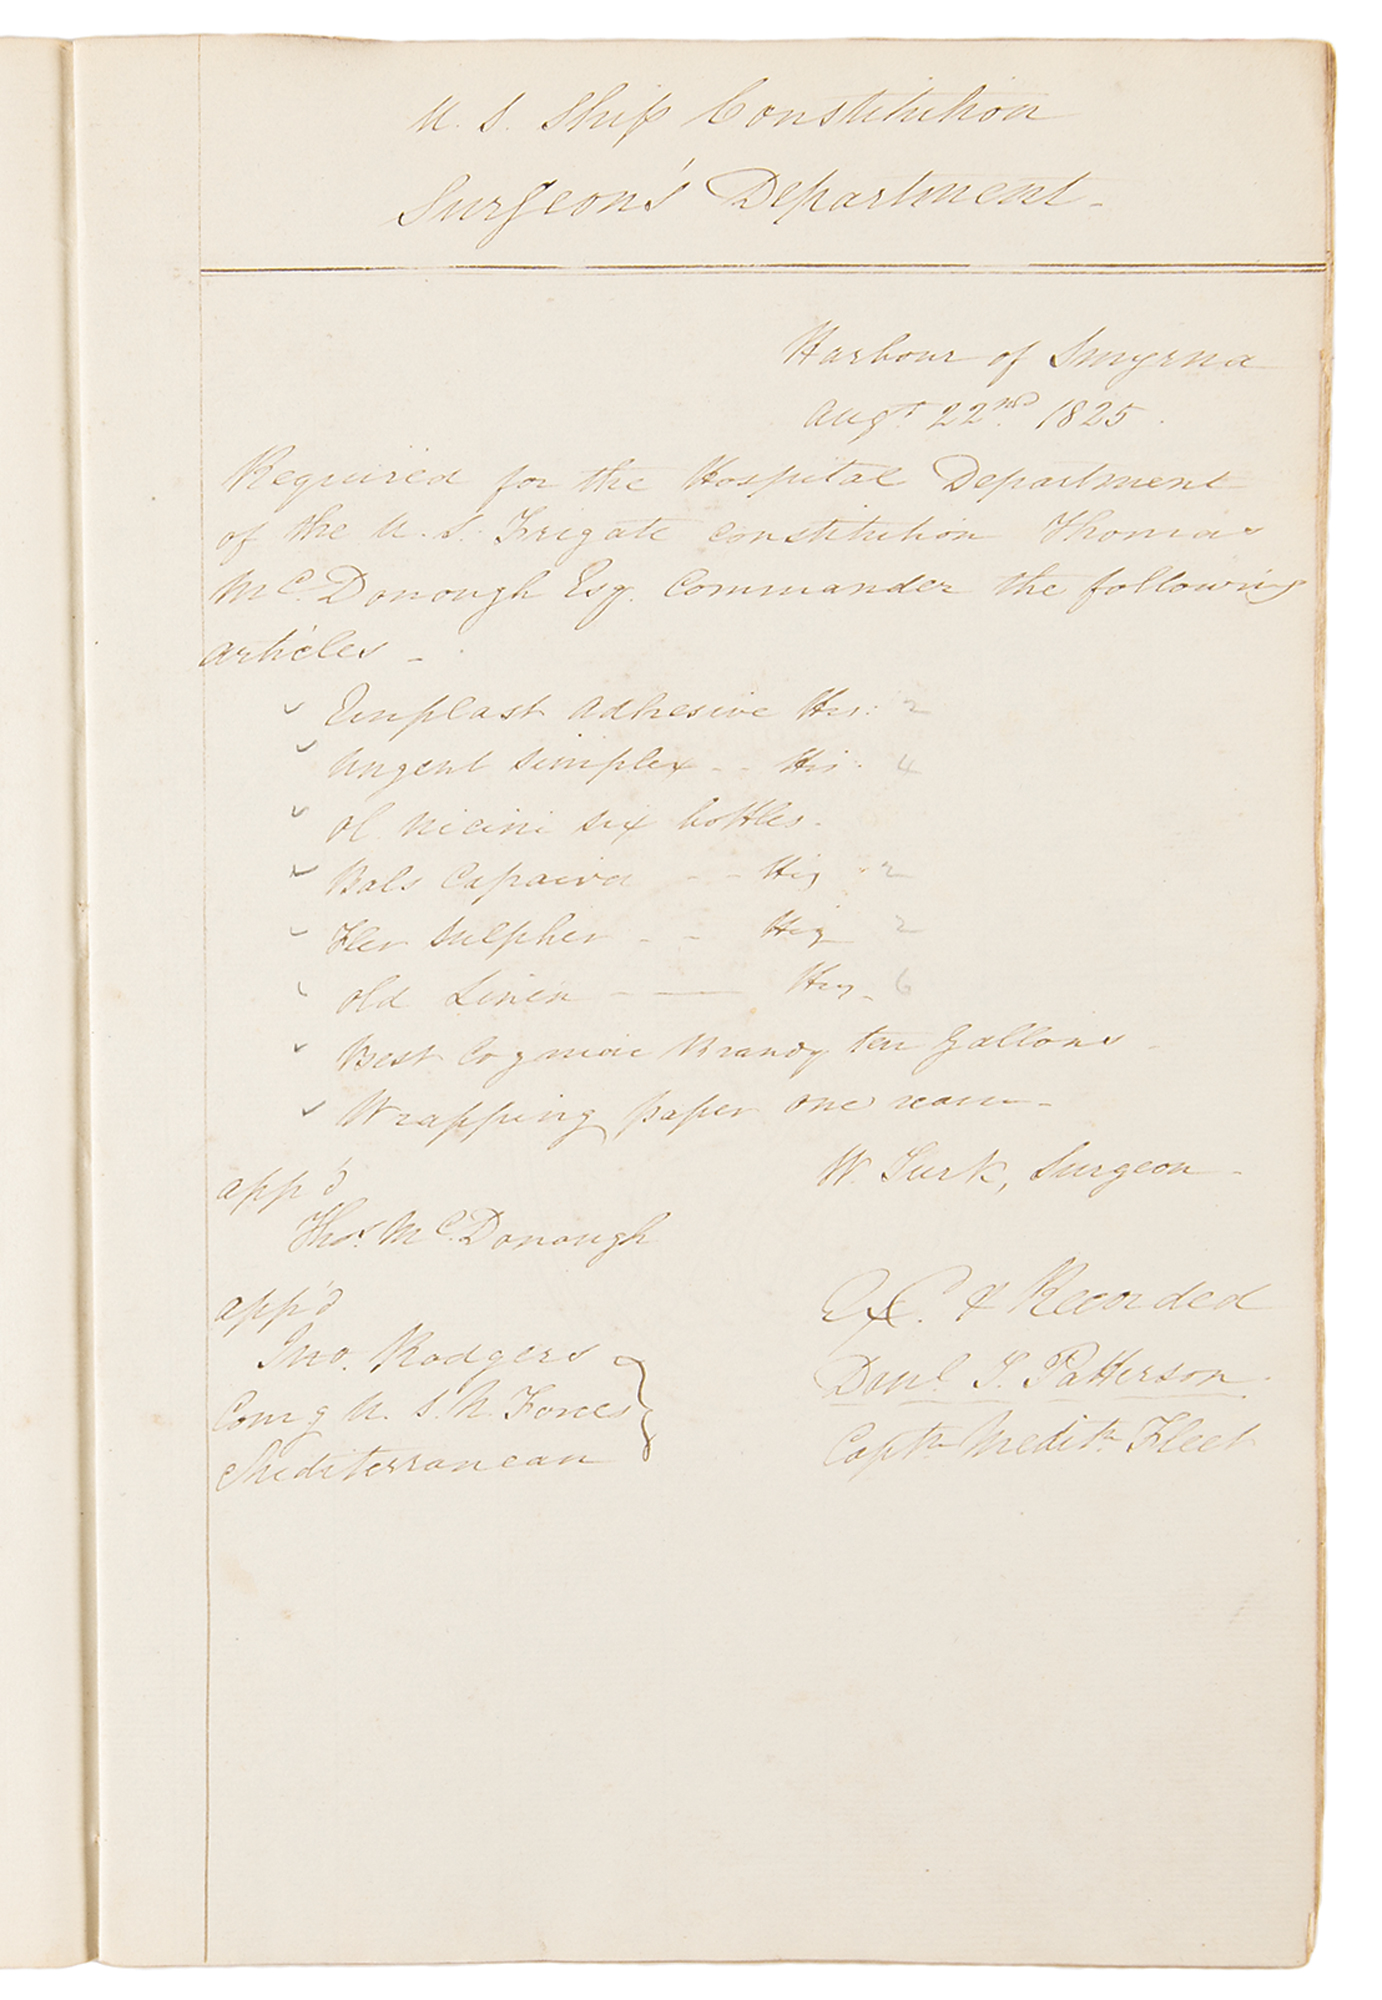 U. S. Ship Constitution
Surgeon's Department -
Harbour of Smyrna
Augt. 22nd. 1825.
Required for the Hospital Department
of the U. S. Frigate Constitution Thomas
Mc.Donough Esq. Commander the following
articles -
Emplast Adhesive 2
Ungent Simplex -- 4
Ol. Ricini six bottles.
Bals Capaiva -- 2
Flor Sulpher -- 2
Old Linen - — 6
Best Cogniac Brandy ten Gallons -
Wrapping paper one ream -
W. Turk, Surgeon -
app'd
Thos. Mc.Donough
app'd
Jno. Rodgers
Comg U. S. N. Forces
Mediterranean
& Recorded
Danl. T. Patterson.
Captn. Meditn. Fleet